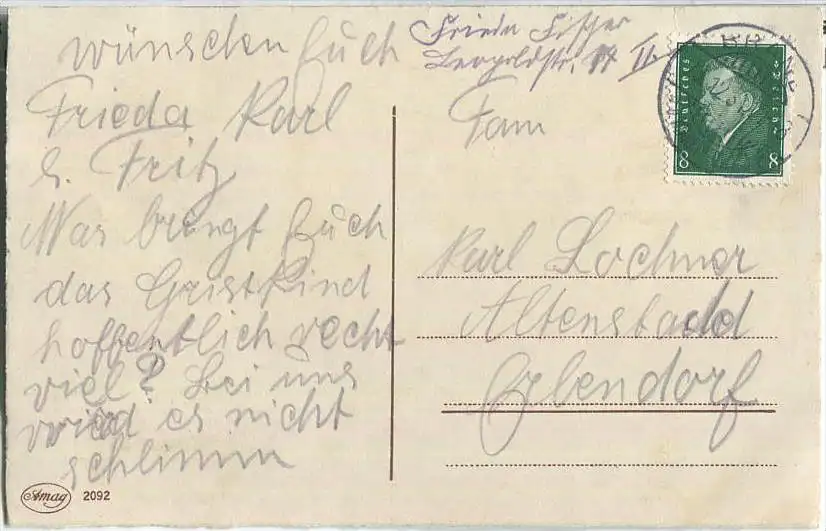 wünschen Euch
Frieda Karl
u. Fritz
Was bringt Euch
das Gristkind
hoffentlich recht
viel? bei uns
wird es nicht
schlimm
Frieda Fischer
Leopoldstr. II
Fam
Karl Lochner
Altenstadt
Erbendorf
Deutsches Reich
8 8
Amag 2092